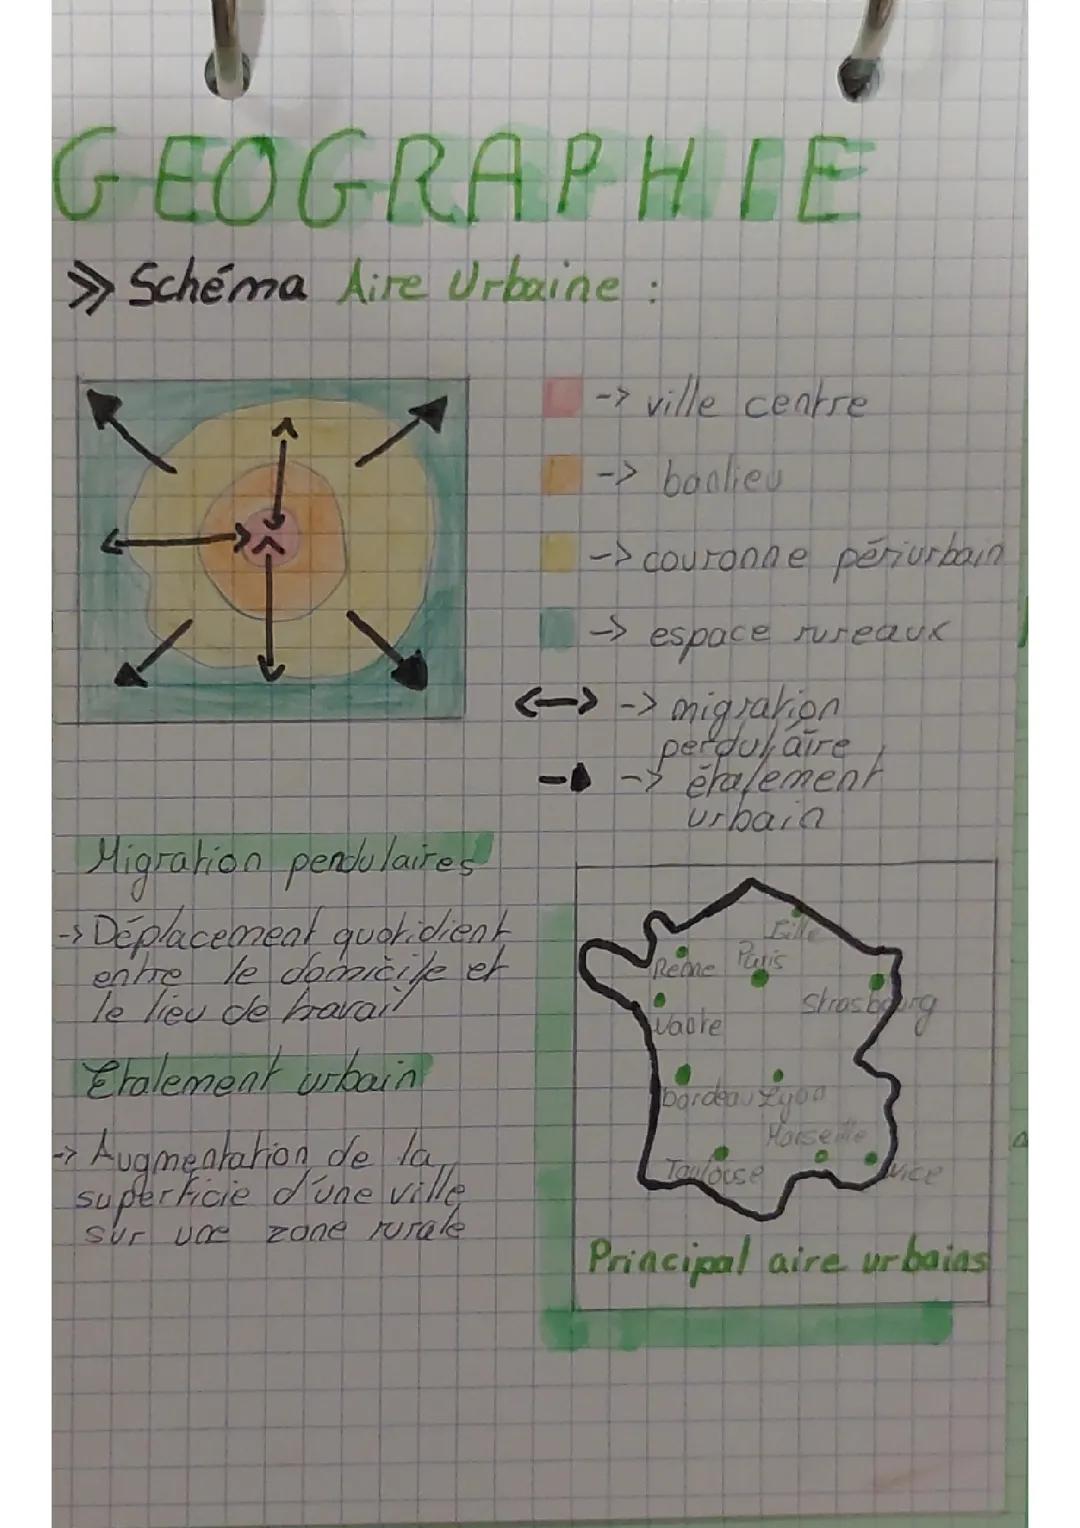 GEOGRAPHIE
>> Schéma Aire Urbaine :
-> ville centre
-> banlieu
-> couronne périurbain
-> espace rureaux
<-> -> migration
perdulaire
-> étalement
urbain
Migration pendulaires
-> Déplacement quotidient
entre le domicile et
le lieu de travail
Etalement urbain
-> Augmentation de la
superficie d'une ville
sur une zone rurale
Lille
Paris
Strasbourg
bordeau
Lyon
Marseille
Toulouse
Nice
Principal aire urbains